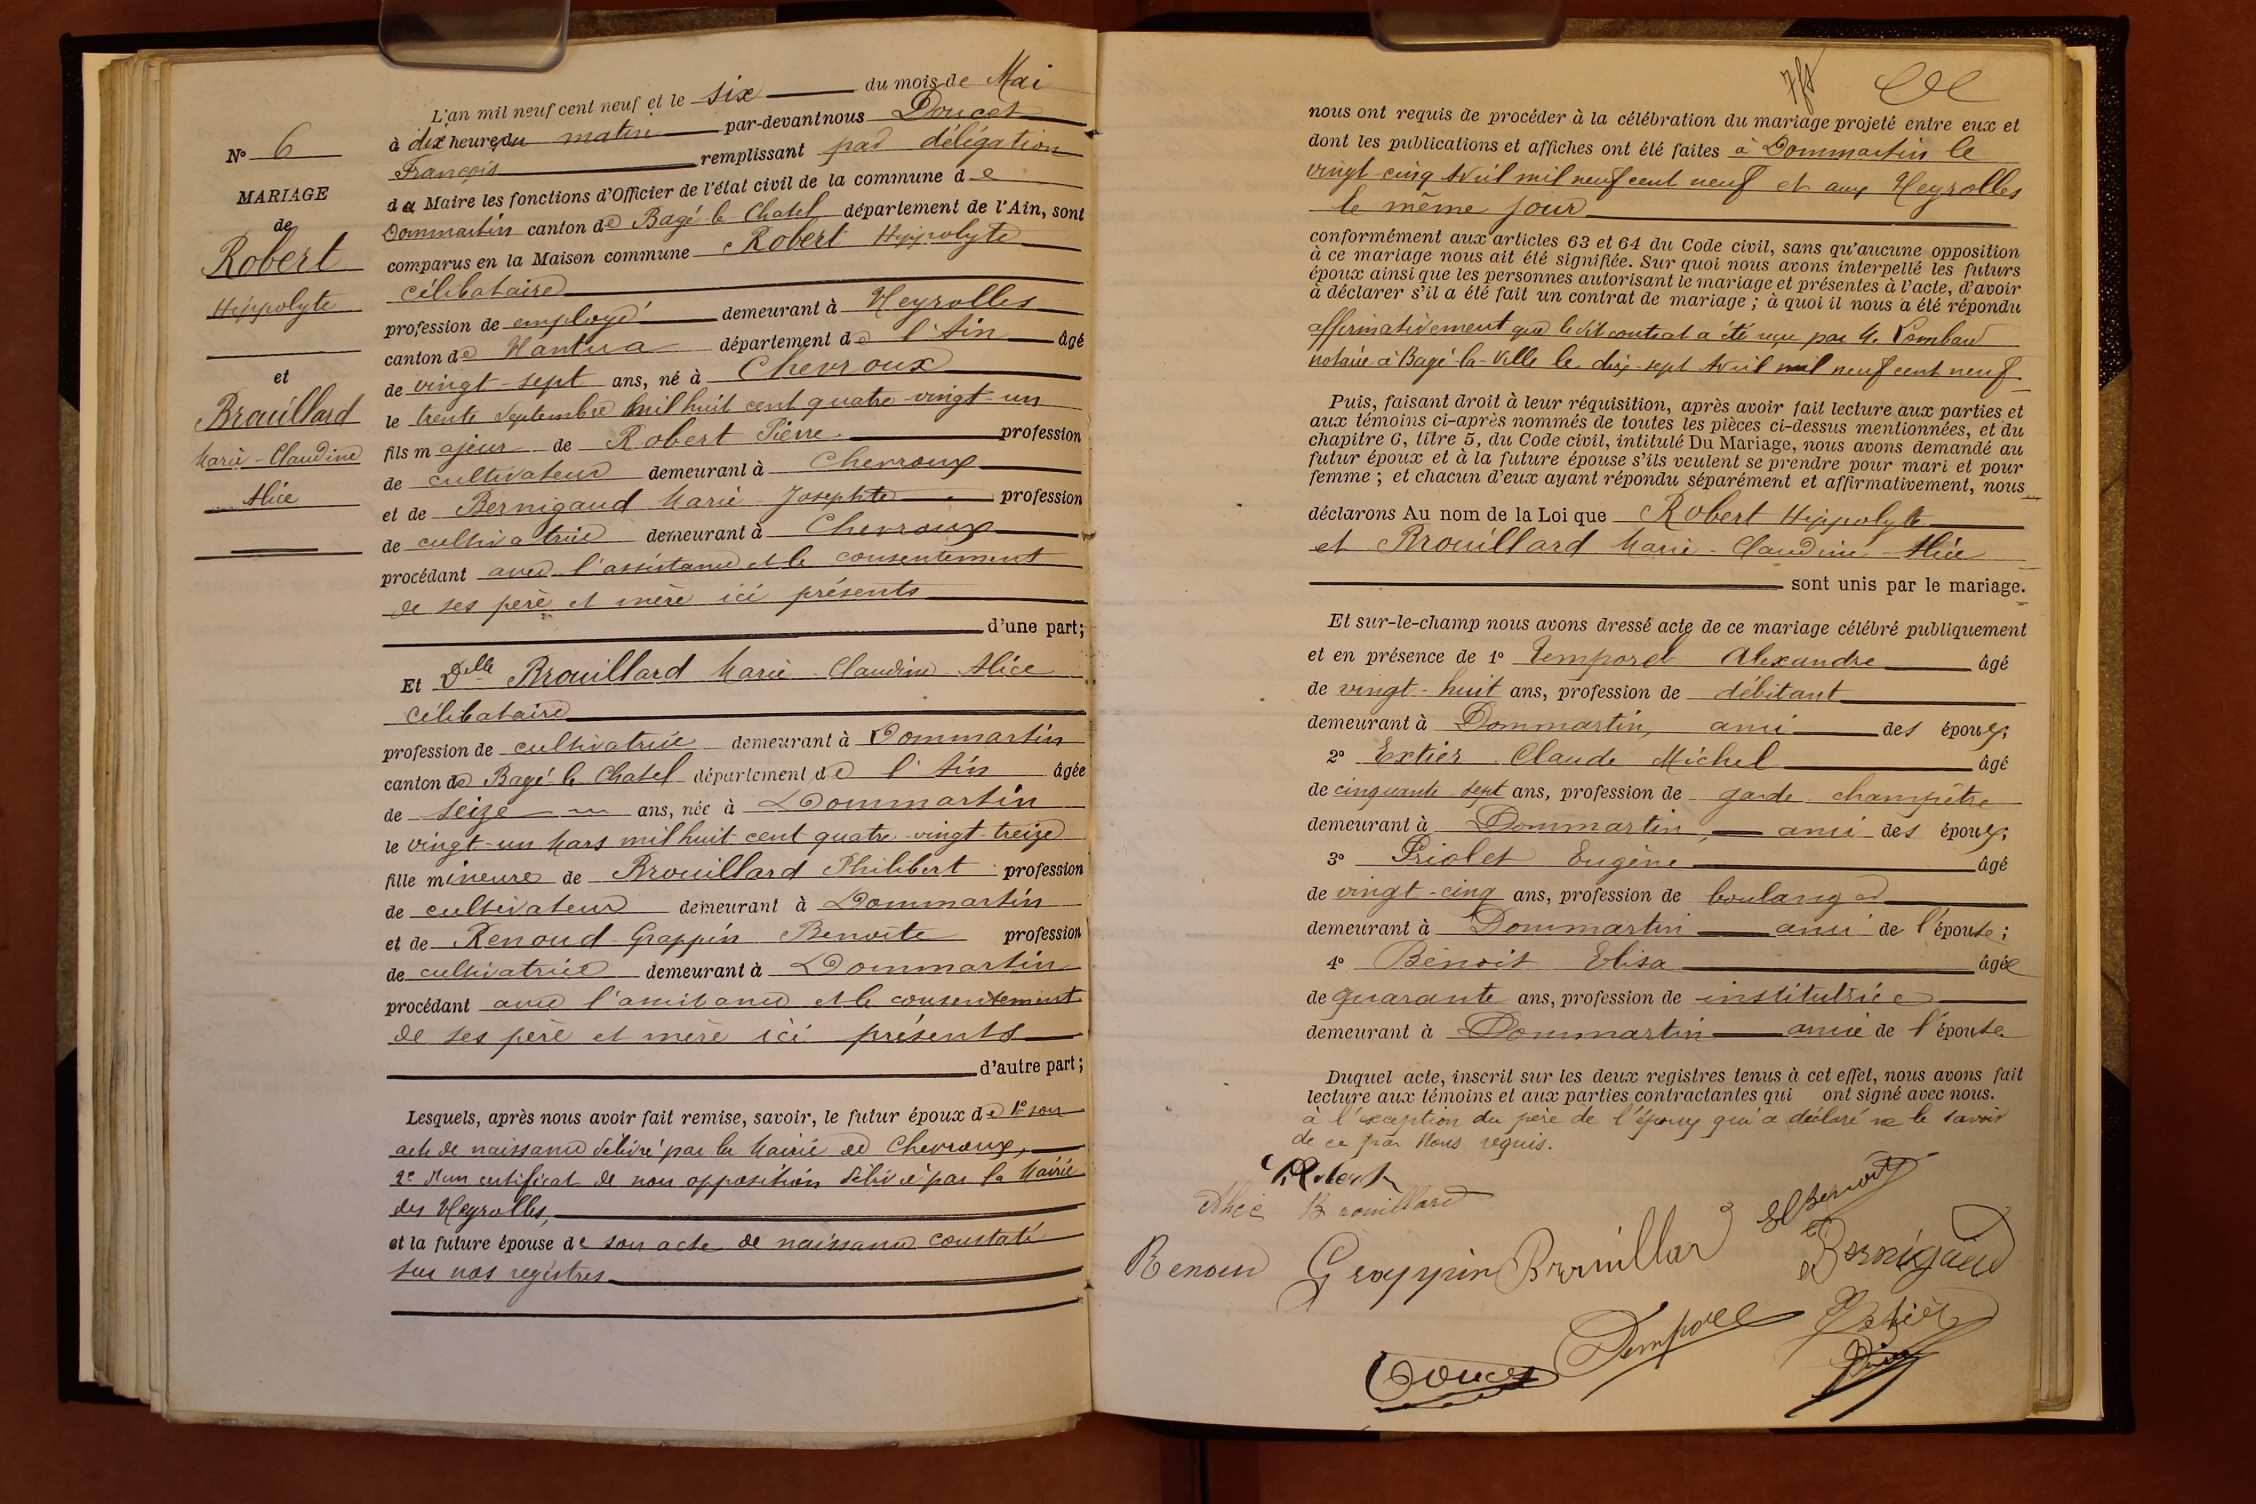 N° 6
MARIAGE
de
Robert
Hippolyte
et
Brouillard
Marie-Claudine
Alice
L'an mil neuf cent neuf et le six du mois de Mai
à dix heures du matin par-devant nous Doucet
François remplissant par délégation
du Maire les fonctions d'Officier de l'état civil de la commune de
Dommartin canton de Bagé-le-Chatel département de l'Ain, sont
comparus en la Maison commune Robert Hippolyte
célibataire
profession de employé demeurant à Neyrolles
canton de Nantua département de l'Ain âgé
de vingt-sept ans, né à Chevroux
le trente Septembre mil huit cent quatre-vingt-un
fils majeur de Robert Pierre profession
de cultivateur demeurant à Chevroux
et de Bernigaud Marie-Josephte profession
de cultivatrice demeurant à Chevroux
procédant avec l'assistance et le consentement
de ses père et mère ici présents
d'une part;
Et Delle Brouillard Marie-Claudine Alice
célibataire
profession de cultivatrice demeurant à Dommartin
canton de Bagé-le-Chatel département de l'Ain âgée
de seize ans, née à Dommartin
le vingt-un Mars mil huit cent quatre-vingt-treize
fille mineure de Brouillard Philibert profession
de cultivateur demeurant à Dommartin
et de Renoud-Grappin Benoîte profession
de cultivatrice demeurant à Dommartin
procédant avec l'assistance et le consentement
de ses père et mère ici présents
d'autre part;
Lesquels, après nous avoir fait remise, savoir, le futur époux de 1° son
acte de naissance délivré par la Mairie de Chevroux,
2° d'un certificat de non opposition délivré par la Mairie
des Neyrolles,
et la future épouse de son acte de naissance constaté
sur nos registres
nous ont requis de procéder à la célébration du mariage projeté entre eux et
dont les publications et affiches ont été faites à Dommartin le
vingt-cinq Avril mil neuf cent neuf et aux Neyrolles
le même jour
conformément aux articles 63 et 64 du Code civil, sans qu'aucune opposition
à ce mariage nous ait été signifiée. Sur quoi nous avons interpellé les futurs
époux ainsi que les personnes autorisant le mariage et présentes à l'acte, d'avoir
à déclarer s'il a été fait un contrat de mariage; à quoi il nous a été répondu
affirmativement que le dit contrat a été reçu par M. Lombard
notaire à Bagé-la-Ville le dix-sept Avril mil neuf cent neuf.
Puis, faisant droit à leur réquisition, après avoir fait lecture aux parties et
aux témoins ci-après nommés de toutes les pièces ci-dessus mentionnées, et du
chapitre 6, titre 5, du Code civil, intitulé Du Mariage, nous avons demandé au
futur époux et à la future épouse s'ils veulent se prendre pour mari et pour
femme; et chacun d'eux ayant répondu séparément et affirmativement, nous
déclarons Au nom de la Loi que Robert Hippolyte
et Brouillard Marie-Claudine-Alice
sont unis par le mariage.
Et sur-le-champ nous avons dressé acte de ce mariage célébré publiquement
et en présence de 1° Temporel Alexandre âgé
de vingt-huit ans, profession de débitant
demeurant à Dommartin, ami des époux;
2° Extier Claude Michel âgé
de cinquante sept ans, profession de garde-champêtre
demeurant à Dommartin, ami des époux;
3° Priolet Eugène âgé
de vingt-cinq ans, profession de boulanger
demeurant à Dommartin ami de l'épouse;
4° Benoit Elisa âgée
de quarante ans, profession de institutrice
demeurant à Dommartin amie de l'épouse
Duquel acte, inscrit sur les deux registres tenus à cet effet, nous avons fait
lecture aux témoins et aux parties contractantes qui ont signé avec nous.
à l'exception du père de l'époux qui a déclaré ne le savoir
de ce par Nous requis.
Robert
Alice Brouillard El Benoit
Renoud Grappin Brouillard Bernigaud
Temporel Extier
Doucet